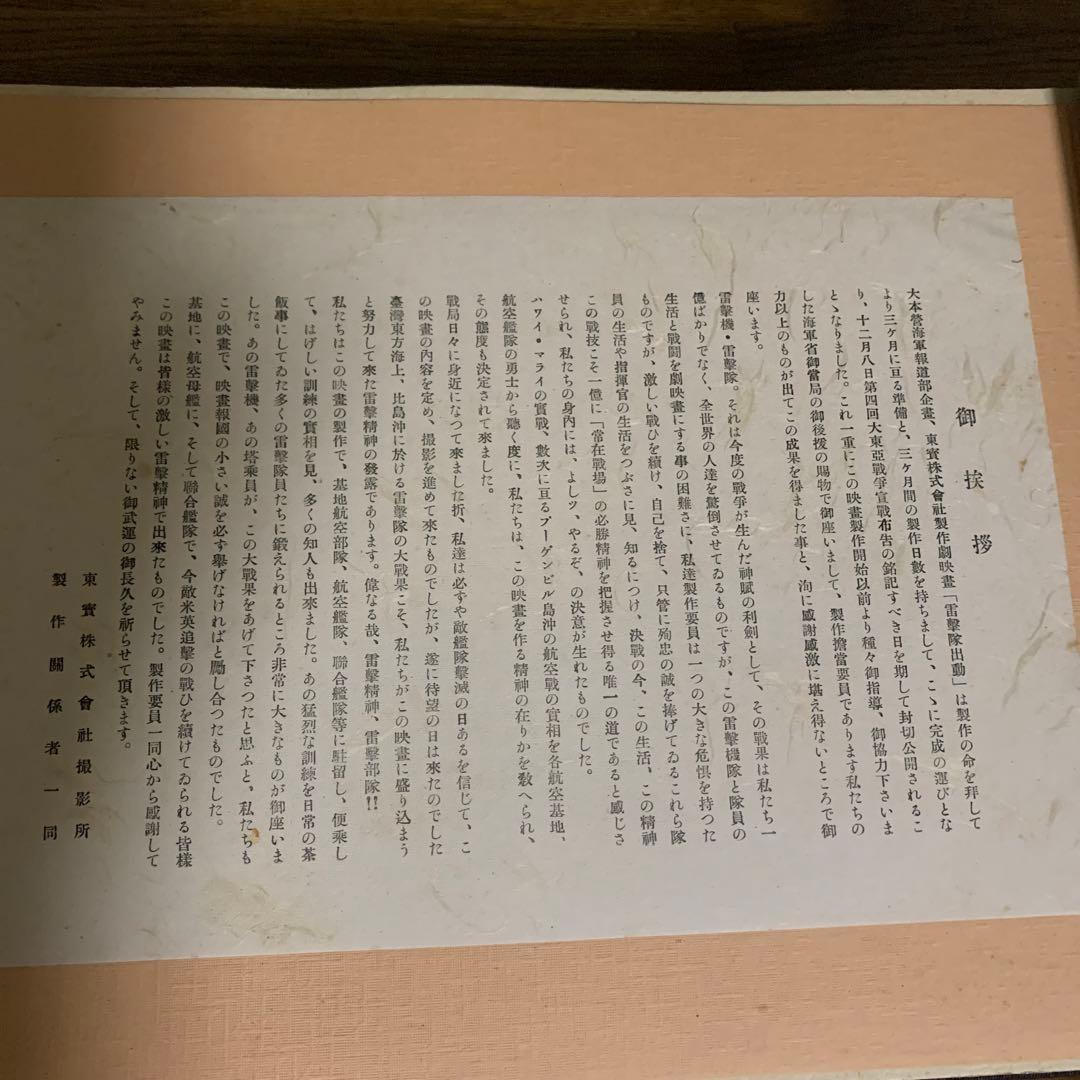 御挨拶
大本營海軍報道部企畫、東寶株式會社製作劇映畫「雷擊隊出動」は製作の命を拜して
より三ケ月に亘る準備と、三ケ月間の製作日數を持ちまして、こゝに完成の運びとな
り、十二月八日第四回大東亞戰爭宣戰布吿の銘記すべき日を期して封切公開されるこ
とゝなりました。これ一重にこの映畫製作開始以前より種々御指導、御協力下さいま
した海軍省御當局の御後援の賜物で御座いまして、製作擔當要員であります私たちの
力以上のものが出てこの成果を得ました事と、洵に感謝感激に堪え得ないところで御
座います。
雷擊機・雷擊隊。それは今度の戰爭が生んだ神賦の利劍として、その戰果は私たち一
億ばかりでなく、全世界の人達を驚倒させてゐるものですが、この雷擊機隊と隊員の
生活と戰鬪を劇映畫にする事の困難さに、私達製作要員は一つの大きな危惧を持つた
ものですが、激しい戰ひを續け、自己を捨て、只管に殉忠の誠を捧げてゐるこれら隊
員の生活や指揮官の生活をつぶさに見、知るにつけ、決戰の今、この生活、この精神
この戰技こそ一億に「常在戰場」の必勝精神を把握させ得る唯一の道であると感じさ
せられ、私たちの身內には、よしツ、やるぞ、の決意が生れたものでした。
ハワイ・マライの實戰、數次に亘るブーゲンビル島沖の航空戰の實相を各航空基地、
航空艦隊の勇士から聽く度に、私たちは、この映畫を作る精神の在りかを敎へられ、
その態度も決定されて來ました。
戰局日々に身近になつて來ました折、私達は必ずや敵艦隊擊滅の日あるを信じて、こ
の映畫の內容を定め、撮影を進めて來たものでしたが、遂に待望の日は來たのでした
臺灣東方海上、比島沖に於ける雷擊隊の大戰果こそ、私たちがこの映畫に盛り込まう
と努力して來た雷擊精神の發露であります。偉なる哉、雷擊精神、雷擊部隊!!
私たちはこの映畫の製作で、基地航空部隊、航空艦隊、聯合艦隊等に駐留し、便乘し
て、はげしい訓練の實相を見、多くの知人も出來ました。あの猛烈な訓練を日常の茶
飯事にしてゐた多くの雷擊隊員たちに鍛えられるところ非常に大きなものが御座いま
した。あの雷擊機、あの塔乘員が、この大戰果をあげて下さつたと思ふと、私たちも
この映畫で、映畫報國の小さい誠を必ず擧げなければと勵し合つたものでした。
基地に、航空母艦に、そして聯合艦隊で、今敵米英追擊の戰ひを續けてゐられる皆樣
この映畫は皆樣の激しい雷擊精神で出來たものでした。製作要員一同心から感謝して
やみません。そして、限りない御武運の御長久を祈らせて頂きます。
東寶株式會社撮影所
製作關係者一同